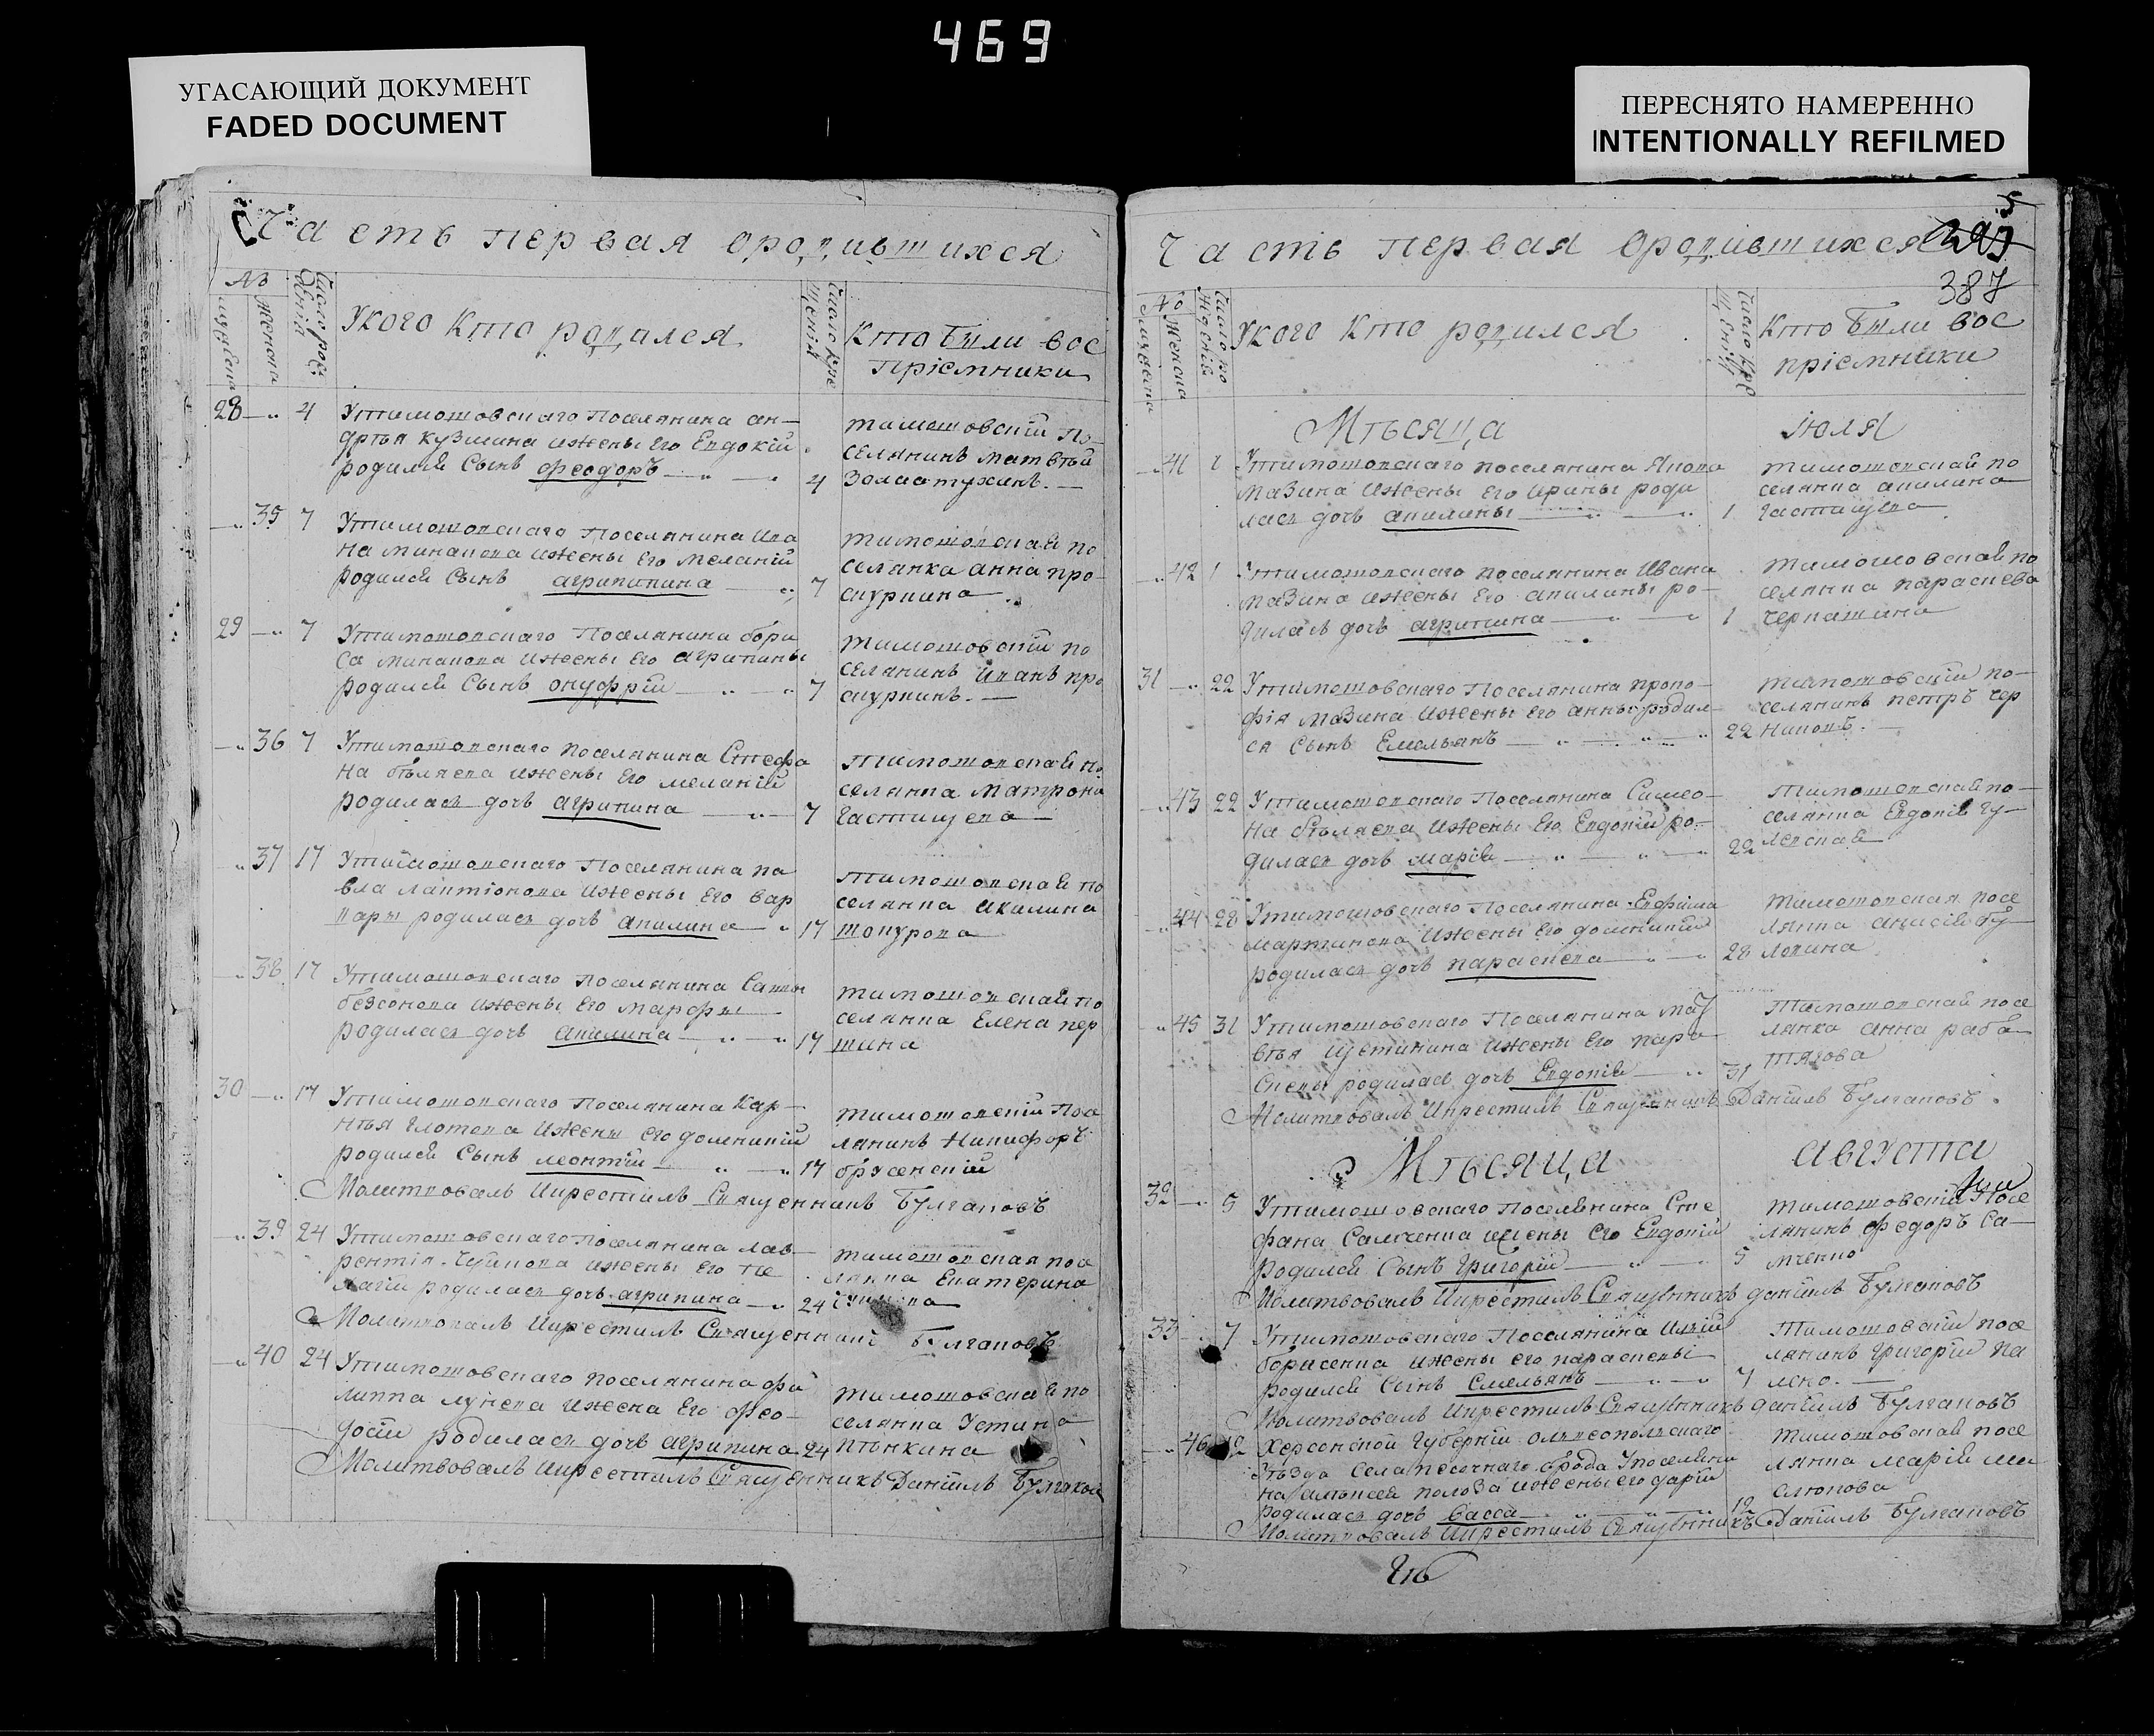 469
УГАСАЮЩИЙ ДОКУМЕНТ
FADED DOCUMENT
ПЕРЕСНЯТО НАМЕРЕННО
INTENTIONALLY REFILMED
Часть первая ородившихся
№
Укого Кто родился
Кто были вос
пріемники
28 4 Утимошовскаго Поселянина ан-
дрѣя кузмина ижены Его Евдокіи
родился Сынъ феодоръ 4
тимошовскій По-
селянинъ матвѣй
Золотухинъ.
35 7 Утимошовскаго Поселянина Ива
на минакова ижены Его меланіи
родился Сынъ агрипина 7
тимошовская по
селянка анна про-
скурнина
29 7 Утимошовскаго Поселянина бори
са минакова ижены Его агрипины
родился Сынъ онуфрій 7
тимошовскій по
селянинъ иванъ про
скурнинъ.
36 7 Утимошовскаго поселянина Стефа
на бѣляева ижены Его меланіи
родилась дочь агрипина 7
тимошовская по
селянка матрона
Частищева
37 17 Утимошовскаго Поселянина па
вла лактіонова ижены Его вар
вары родилась дочь акилина 17
тимошовская по
селянка акилина
шокурова
38 17 Утимошовскаго поселянина Савы
безсонова ижены Его марфы
родилась дочь акилина 17
тимошовская по
селянка Елена пер
шина
30 17 Утимошовскаго Поселянина Кар-
нѣя глотова ижены его домникіи
родился Сынъ леонтій 17
тимошовскій Посе
лянинъ Никифоръ
Молитвовалъ Икрестилъ Священникъ Булгаковъ
39 24 Утимошовскаго поселянина лав-
рентія Чуйкова ижены Его пе
лагіи родилась дочь агрипина 24
тимошовская посе
лянка Екатерина
Молитвовалъ Икрестилъ Священникъ Булгаковъ
40 24 Утимошовскаго поселянина фи
липпа лунева ижена Его фео-
досіи родилась дочь агрипина 24
тимошовская по
селянка Устина
пѣнкина
Молитвовалъ Икрестилъ Священникъ Даніилъ Булгаковъ
5
387
Часть первая ородившихся
Укого Кто родился
Кто были вос
пріемники
Мѣсяца Июля
41 1 Утимошовскаго поселянина Якова
мазина ижены Его ирины роди
лась дочь акилины 1
тимошовская по
селянка акилина
Частищева
42 1 Утимошовскаго поселянина Ивана
мазина ижены Его акилины ро-
дилась дочь агрипина 1
тимошовская по
селянка параскева
чернашина
31 22 Утимошовскаго Поселянина проко-
фія мазина ижены Его анны родил-
ся сынъ Емельянъ 22
тимошовскій по-
селянинъ петръ чер
никовъ.
43 22 Утимошовскаго Поселянина Симео-
на бѣляева ижены Его Евдокіи ро-
дилась дочь марія 22
тимошовская по-
селянка Евдокія гу-
левская
44 28 Утимошовскаго Поселянина Ефима
мартинова ижены Его домникіи
родилась дочь параскева 28
тимошовская посе
лянка анисія бу-
45 31 Утимошовскаго Поселянина мат
вѣя щетинина ижены Его пара
скевы родилась дочь Евдокія 31
тимошовская посе
лянка анна раба
тягова
Молитвовалъ Икрестилъ Священникъ Даніилъ Булгаковъ
Мѣсяца августа
32 5 Утимошовскаго поселянина Сте
фана Самченка жены Его Евдокіи
родился Сынъ григорій 5
тимошовскій Посе
лянинъ федоръ Са-
мченко
Молитвовалъ Икрестилъ Священникъ даніилъ Булгаковъ
33 7 Утимошовскаго Поселянина Иліи
борисенка ижены его параскевы
родился Сынъ Емельянъ 7
тимошовскій посе
лянинъ григорій па
Молитвовалъ Икрестилъ Священникъ даніилъ Булгаковъ
46 12 Херсонской губерніи ольвеопольскаго
Уѣзда Села песочнаго брода Упоселяни
на алексея полоза ижены его даріи
родилась дочь Васса 12
тимошовская посе
лянка марія ми-
Молитвовалъ Икрестилъ Священникъ Даніилъ Булгаковъ